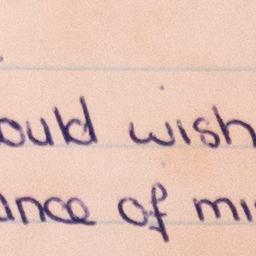 ould wish
ance of mi